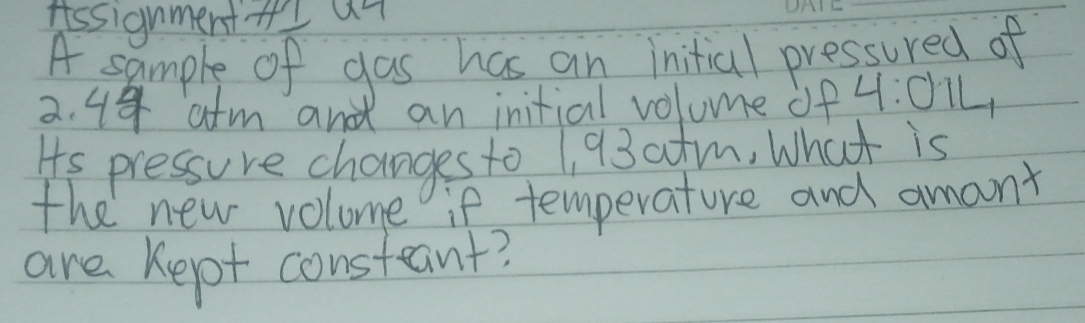 Assignment #1 Q4
DATE
A sample of gas has an initial pressured of
2.44 atm and an initial volume of 4.01L,
Its pressure changes to 1,93 atm. What is
the new volome if temperature and amant
are kept constant?